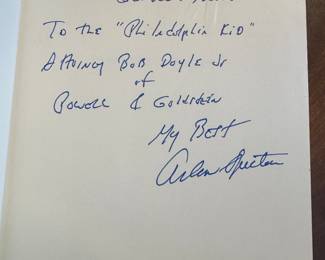 To the "Philadelphia Kid"
Attorney Bob Doyle Jr
of
Powell & Goldstein
My Best
Arlen Specter